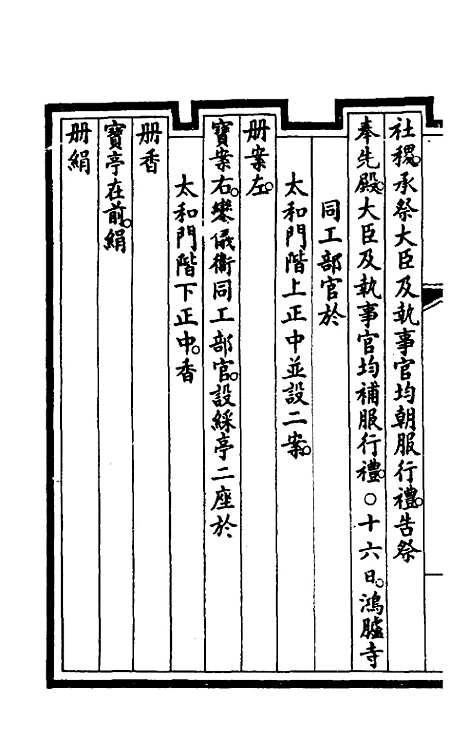 社稷。承祭大臣及執事官均朝服行禮。告祭
奉先殿。大臣及執事官均補服行禮。○十六日。鴻臚寺
同工部官於
太和門階上正中並設二案。
册案左。
寶案右。鑾儀衞同工部官。設綵亭二座於
太和門階下正中。香
册香
寶亭在前。絹
册絹